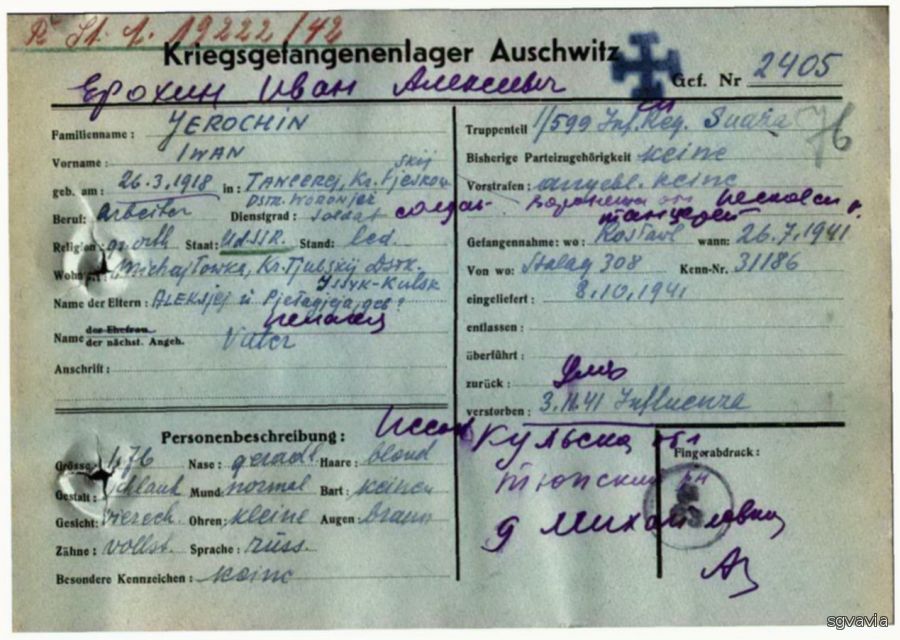 R. St. f. 19222/42
Kriegsgefangenenlager Auschwitz
Ерохин Иван Алексеевич
Gef. Nr 2405
Familienname: JEROCHIN
Vorname: IWAN
geb. am: 26.3.1918 in: TANCEREJ, Kr. Pjeskowskij
DSTR. WORONJEŻ
Beruf: Arbeiter Dienstgrad: Soldat солдат
Religion: gr. orth Staat: UdSSR. Stand: led.
Wohnort: Michajłowka, Kr. Tjubskij Dstr.
YSSYK-Kulsk
Name der Eltern: ALEKSJEJ u. Pjełagjeja,
Name der Ehefrau der nächst. Angeh. Vater
Anschrift:
Personenbeschreibung:
Grösse: 1,76 Nase: gerade Haare: blond
Gestalt: schlank Mund: normal Bart: keinen
Gesicht: viereck. Ohren: kleine Augen: braun
Zähne: vollst. Sprache: russ.
Besondere Kennzeichen: keine
Truppenteil 1/599 Inf. Reg.
76
Bisherige Parteizugehörigkeit keine
Vorstrafen: angebl. keine
Gefangennahme: wo: Rosławl wann: 26.7.1941
Von wo: Stalag 308 Kenn-Nr. 31186
eingeliefert: 8.10.1941
entlassen:
überführt:
zurück:
verstorben: 3.11.41 Influenza
Иссык Кульска обл
Тюпский рн
д Михайловка
Fingerabdruck:
sgvavia